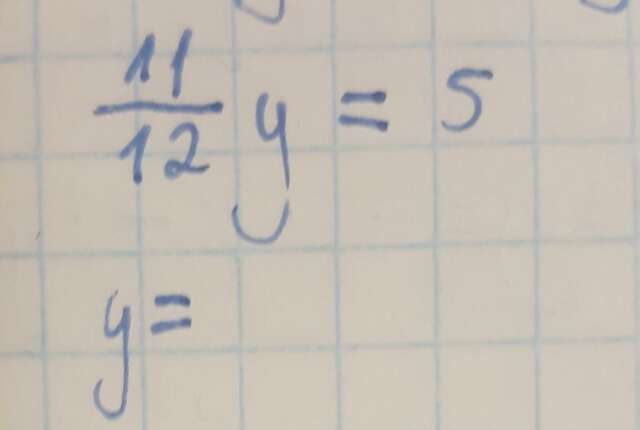 11/12 y = 5
y =